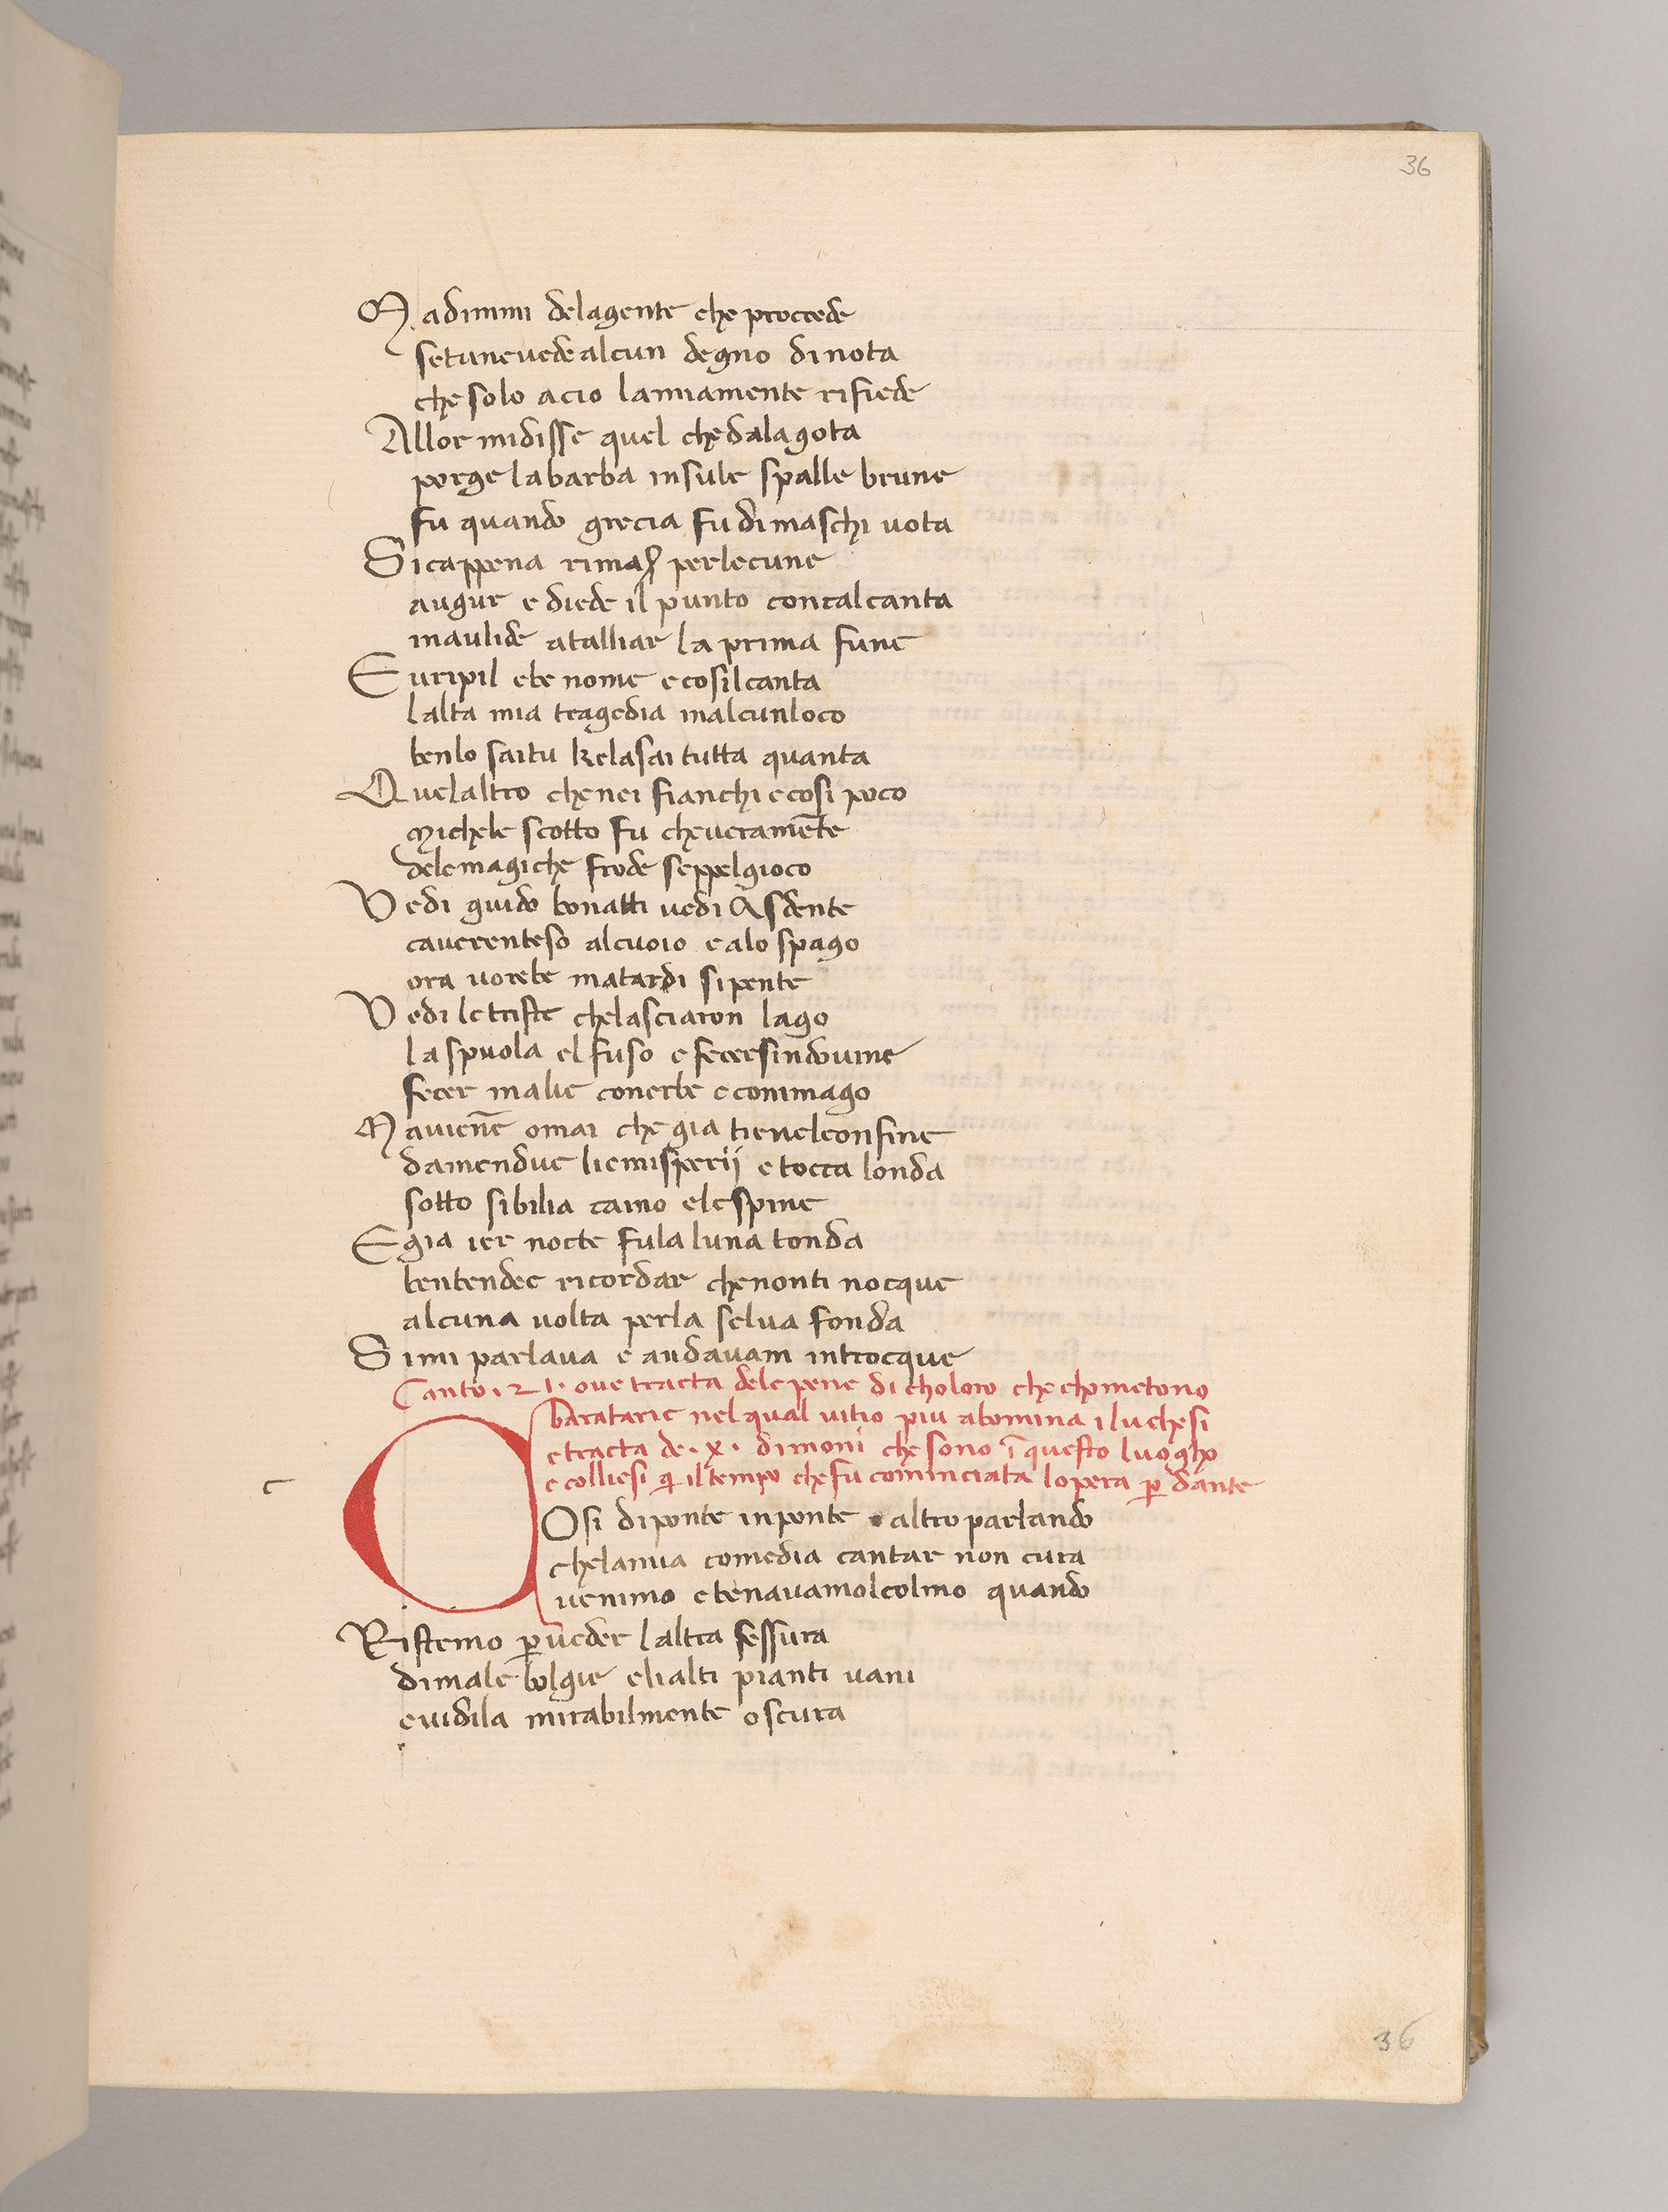 36
Madimmi delagente che proccede
setuneuede alcun degno dinota
che solo acio lamiamente rifiede
Allor midisse quel chedalagota
porge labarba insule spalle brune
fu quando grecia fu dimaschi uota
Sicappena rimas perlecune
augur e diede il punto concalcanta
inaulide atalliar la prima fune
Euripil ebe nome e cosilcanta
lalta mia tragedia inalcunloco
benlo saitu kelasai tutta quanta
Quelaltro chenei fianchi e cosi poco
Michele scotto fu cheueramēte
delemagiche frode seppelgioco
Vedi guido bonatti uedi Asdente
cauerenteso alcuoio e alo spago
ora uorebe matardi sipente
Vedi letriste chelasciaron lago
la spuola el fuso e fecersindouine
fecer malie conerbe e conimago
Mauienē omai che gia tienelconfine
damendue liemisperij e tocca londa
sotto sibilia caino elespine
Egia ier nocte fulaluna tonda
bentendee ricordar chenonti nocque
alcuna uolta perla selua fonda
Simi parlaua e andauam introcque
Canto . 21. oue tracta dele pene di choloro che chometono
baratarie nelqual uitio piu abomina i luchesi
e tracta de . x . dimoni che sono ī questo luogho
e colliesi qi il tempo chefu cominciata lopera p dante
COsi diponte inponte altro parlando
chelamia comedia cantar non cura
uenimo e tenauamolcolmo quando
Ristemo p ueder laltra fessura
dimale bolgie elialti pianti uani
euidila mirabilmente oscura
c
36